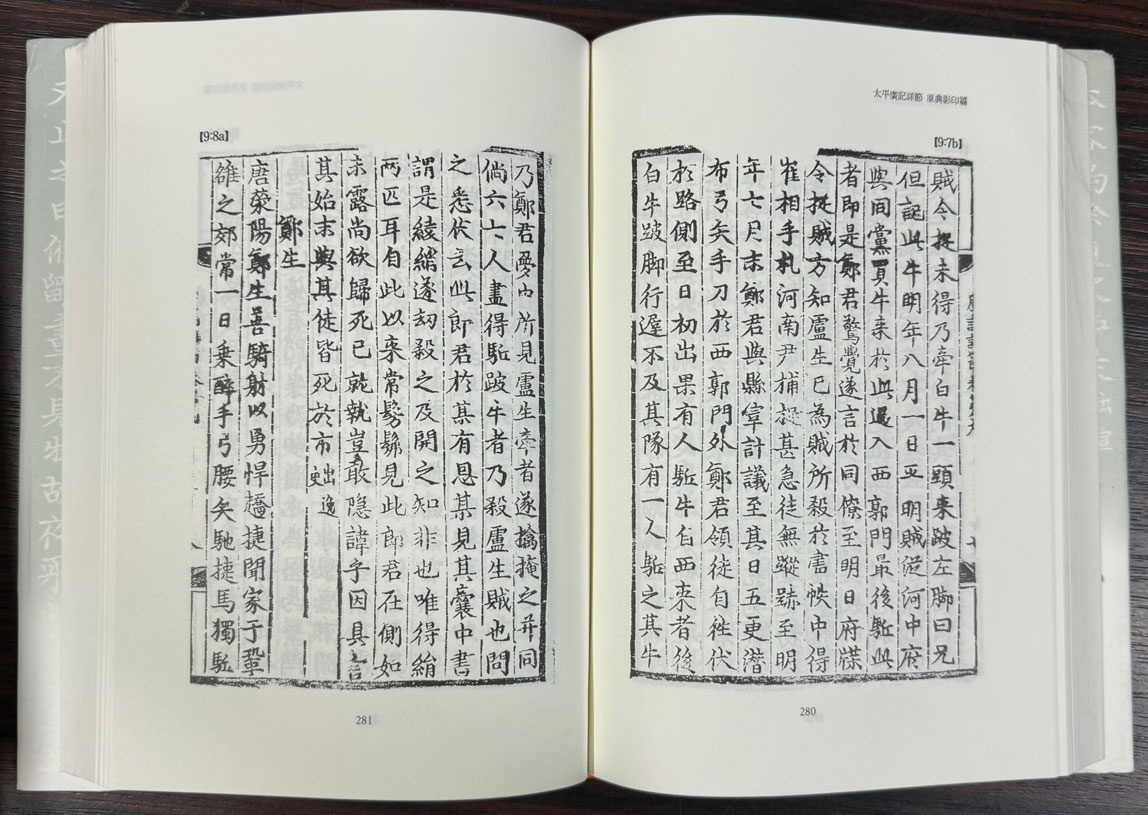 太平廣記詳節 原典影印篇
【9:7b】
賊令捉未得乃牽白牛一頭来跛左脚曰兄
但記此牛明年八月一日平明賊從河中府
與同黨買牛来於此過入西郭門最後駈此
者即是鄭君驚覺遂言於同僚至明日府牒
令捉賊方知盧生已為賊所殺於書帙中得
崔相手札河南尹捕捉甚急徒無蹤跡至明
年七月末鄭君與縣宰計議至其日五更潛
布弓矢手刀於西郭門外鄭君領徒自徃伏
於路側至日初出果有人駈牛自西来者後
白牛跛脚行遲不及其隊有一人駈之其牛
280
【9:8a】
乃鄭君夢中所見盧生牽者遂擒掩之并同
倘六七人盡得駈跛牛者乃殺盧生賊也問
之悉伏云此郎君於某有恩某見其囊中書
謂是綾絹遂刼殺之及開之知非也唯得絹
两匹耳自此以来常髣髴見此郎君在側如
未露尚欲歸死已就執豈敢隐諱乎因具言
其始末與其徒皆死於市 出逸史
鄭生
唐荥陽鄭生善騎射以勇悍趫捷聞家于鞏
雒之郊常一日乗醉手弓腰矢馳捷馬獨駈
281